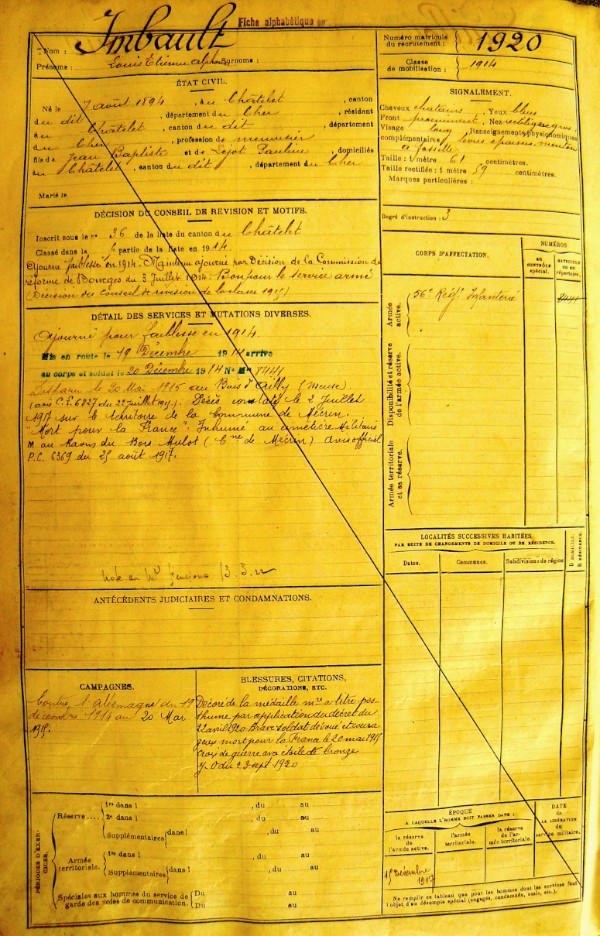 Fiche alphabétique
Nom : Imbault
Prénoms : Louis Etienne Alphonse surnoms :
Numéro matricule
du recrutement :
1920
Classe
de mobilisation :
1914
ÉTAT CIVIL.
Né le 7 août 1894, au Châtelet, canton
du dit, département du Cher, résidant
au Châtelet, canton du dit, département
du Cher, profession de menuisier
fils de Jean Baptiste et de Lejot Pauline, domiciliés
au Châtelet, canton du dit, département du Cher
Marié le
SIGNALEMENT.
Cheveux chatains Yeux bleus
Front proéminent, Nez rectiligne gros
Visage long Renseignements physionomiques
complémentaires lèvres épaisses menton
à fossette
Taille : 1 mètre 61 centimètres.
Taille rectifiée : 1 mètre 59 centimètres.
Marques particulières :
Degré d'instruction : 3
DÉCISION DU CONSEIL DE RÉVISION ET MOTIFS.
Inscrit sous le no 36 de la liste du canton du Châtelet
Classé dans la partie de la liste en 1914.
Ajourné faiblesse en 1914. Maintenu ajourné par Décision de la Commission de
réforme de Bourges du 3 Juillet 1914. Bon pour le service armé
(Décision des Conseil de révision de la classe 1915)
DÉTAIL DES SERVICES ET MUTATIONS DIVERSES.
Ajourné pour faiblesse en 1914.
Mis en route le 19 Décembre 1914 arrivé
au corps et soldat le 20 Décembre 1914 No Mle 8441
Disparu le 20 Mai 1915 au Bois d'Ailly (Meuse)
Décès constaté le 2 Juillet
1917 sur le territoire de la Commune de Mécrin.
"Mort pour la France". Inhumé au cimetière Militaire
M. au Ravin du Bois Mulot (Cne de Mécrin) avis officiel
P.C. 6369 du 25 août 1917.
CORPS D'AFFECTATION.
NUMÉROS
AU CONTRÔLE SPÉCIAL.
MATRICULE OU AU RÉPERTOIRE.
Armée active.
56e Régt Infanterie
8441
Disponibilité et réserve de l'armée active.
Armée territoriale et sa réserve.
LOCALITÉS SUCCESSIVES HABITÉES,
PAR SUITE DE CHANGEMENTS DE DOMICILE OU DE RÉSIDENCE.
Dates. Communes. Subdivisions de région
D. domicile. R. résidence.
ANTÉCÉDENTS JUDICIAIRES ET CONDAMNATIONS.
CAMPAGNES.
Contre l'Allemagne du 19
décembre 1914 au 20 Mai
1915.
BLESSURES, CITATIONS,
DÉCORATIONS, ETC.
Décoré de la médaille mre à titre pos
thume par application du décret du
Brave soldat dévoué et coura
geux mort pour la France le 20 mai 1915
Croix de guerre avec étoile de bronze
J.O du 23 sept 1920
PÉRIODES D'EXERCICES.
Réserve....
1re dans l , du au
2e dans l , du au
Supplémentaires dans l , du au
Armée territoriale.
1re dans l , du au
Supplémentaires dans l , du au
Spéciales aux hommes du service de
garde des voies de communication.
Du au
Du au
ÉPOQUE
À LAQUELLE L'HOMME DOIT PASSER DANS :
la réserve de l'armée active.
l'armée territoriale.
la réserve de l'armée territoriale.
DATE DE LA LIBÉRATION du service militaire.
1917
Ne remplir ce tableau que pour les hommes dont les services font
l'objet d'un décompte spécial (engagés, condamnés, omis, etc.).